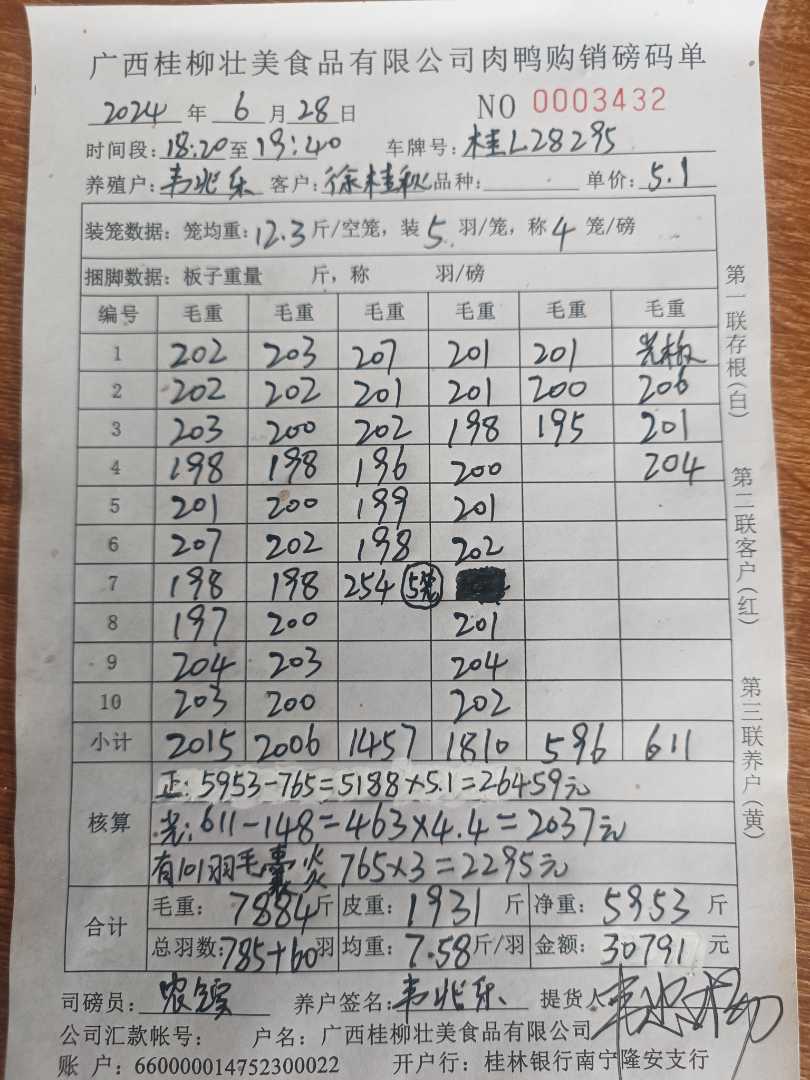 广西桂柳壮美食品有限公司肉鸭购销磅码单
2024 年 6 月 28 日 NO 0003432
时间段: 18:20 至 19:40 车牌号: 桂L28295
养殖户: 韦兆乐 客户: 徐桂秋 品种: 单价: 5.1
装笼数据: 笼均重: 12.3 斤/空笼, 装 5 羽/笼, 称 4 笼/磅
捆脚数据: 板子重量 斤, 称 羽/磅
编号 毛重 毛重 毛重 毛重 毛重 毛重
1 202 203 207 201 201 光板
2 202 202 201 201 200 206
3 203 200 202 198 195 201
4 198 198 196 200 204
5 201 200 199 201
6 207 202 198 202
7 198 198 254 5笼
8 197 200 201
9 204 203 204
10 203 200 202
小计 2015 2006 1457 1810 596 611
核算 正: 5953-765=5188×5.1=26459元
光: 611-148=463×4.4=2037元
有101羽毛囊炎 765×3=2295元
合计 毛重: 7884斤 皮重: 1931 斤 净重: 5953 斤
总羽数: 785+60羽 均重: 7.58斤/羽 金额: 30791 元
司磅员: 养户签名: 韦兆乐 提货人
公司汇款帐号: 户名: 广西桂柳壮美食品有限公司
账 户: 660000014752300022 开户行: 桂林银行南宁隆安支行
第一联存根(白)
第二联客户(红)
第三联养户(黄)